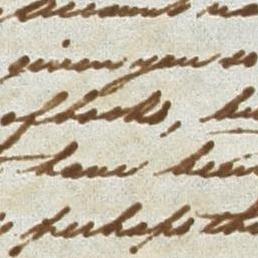 account
given you so
of books, bu
have been
perhaps tha